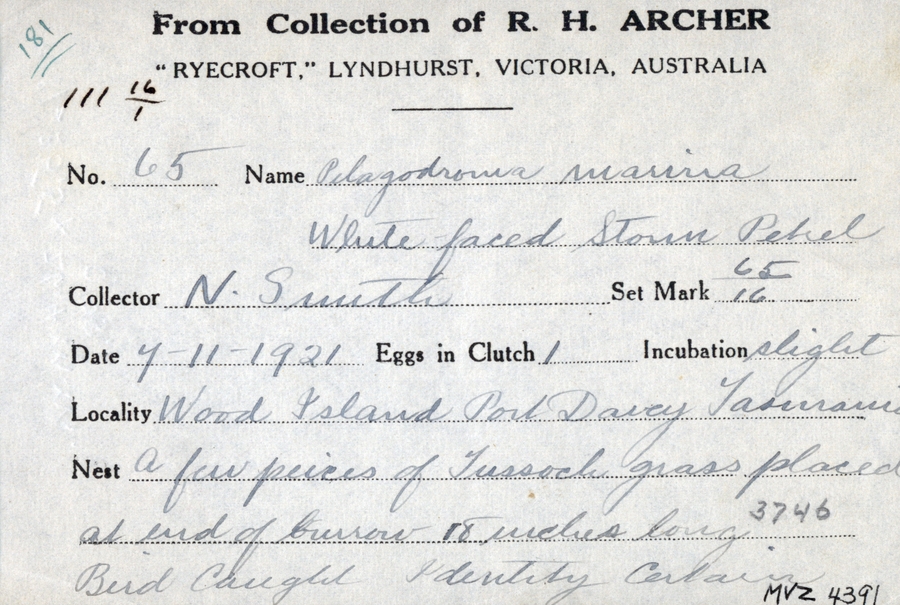 181
From Collection of R. H. ARCHER
"RYECROFT," LYNDHURST, VICTORIA, AUSTRALIA
111 16/1
No. 65 Name Pelagodroma marina
White faced Storm Petrel
Collector N. Smith Set Mark 65/16
Date 7-11-1921 Eggs in Clutch 1 Incubation slight
Locality Wood Island Port Davey Tasmania
Nest A few peices of Tussock grass placed
at end of burrow 18 inches long 3746
Bird Caught Identity Certain
MVZ 4391